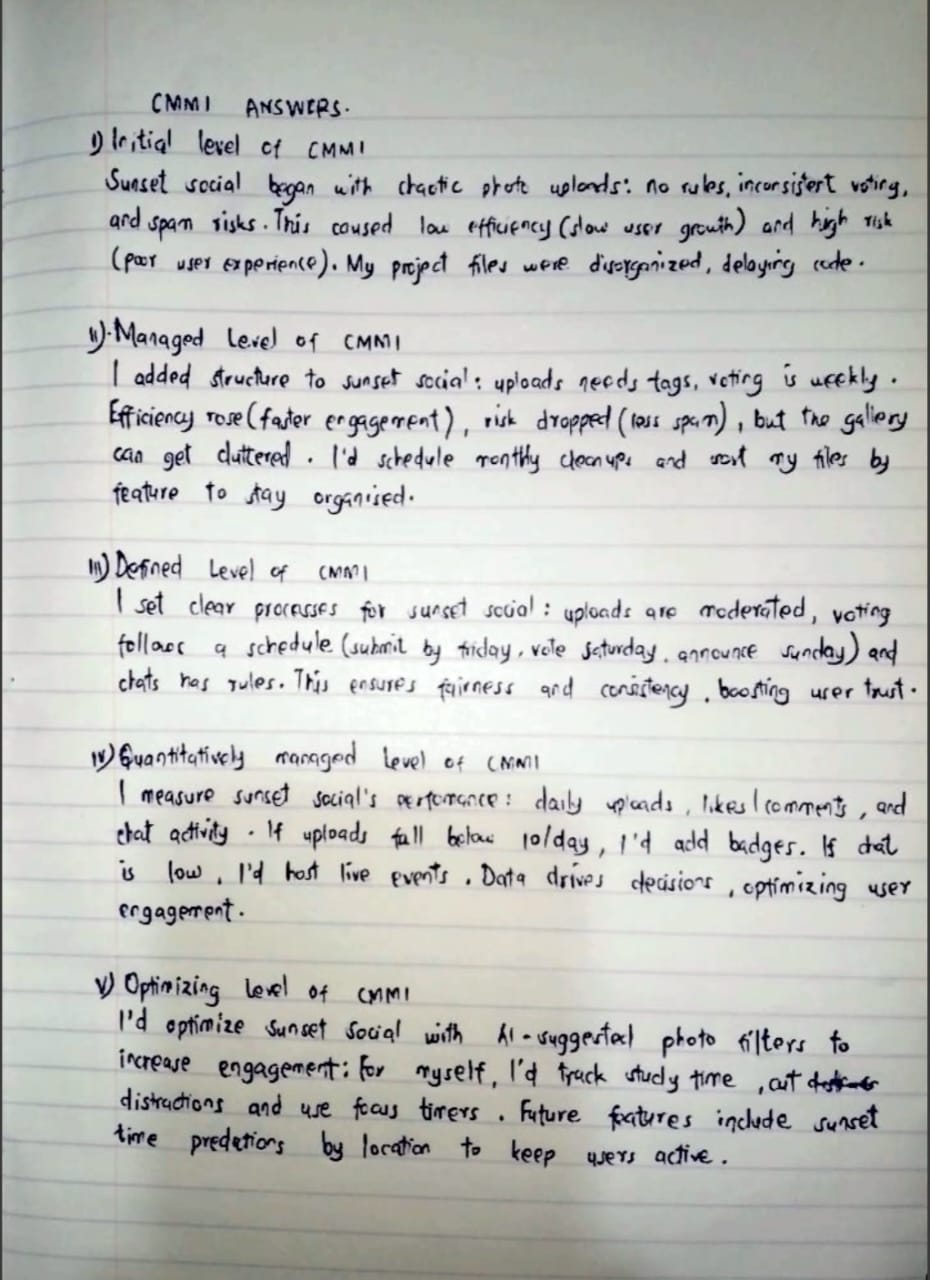 CMMI ANSWERS.
I) Initial level of CMMI
Sunset social began with chaotic photo uploads: no rules, inconsistent voting,
and spam risks. This caused low efficiency (slow user growth) and high risk
(poor user experience). My project files were disorganized, delaying code.
II). Managed Level of CMMI
I added structure to sunset social: uploads needs tags, voting is weekly.
Efficiency rose (faster engagement), risk dropped (less spam), but the gallery
can get cluttered. I'd schedule monthly cleanups and sort my files by
feature to stay organised.
III) Defined Level of CMMI
I set clear processes for sunset social: uploads are moderated, voting
follows a schedule (submit by friday, vote saturday, announce sunday) and
chats has rules. This ensures fairness and consistency, boosting user trust.
IV) Quantitatively managed Level of CMMI
I measure sunset social's performance: daily uploads, likes/comments, and
chat activity. If uploads fall below 10/day, I'd add badges. If chat
is low, I'd host live events. Data drives decisions, optimizing user
engagement.
V) Optimizing Level of CMMI
I'd optimize Sunset Social with AI-suggested photo filters to
increase engagement; For myself, I'd track study time, cut
distractions and use focus timers. Future features include sunset
time predetions by location to keep users active.